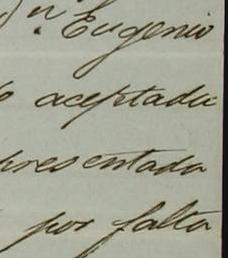 Dn Eugenio
aceptada
presentada
por falta